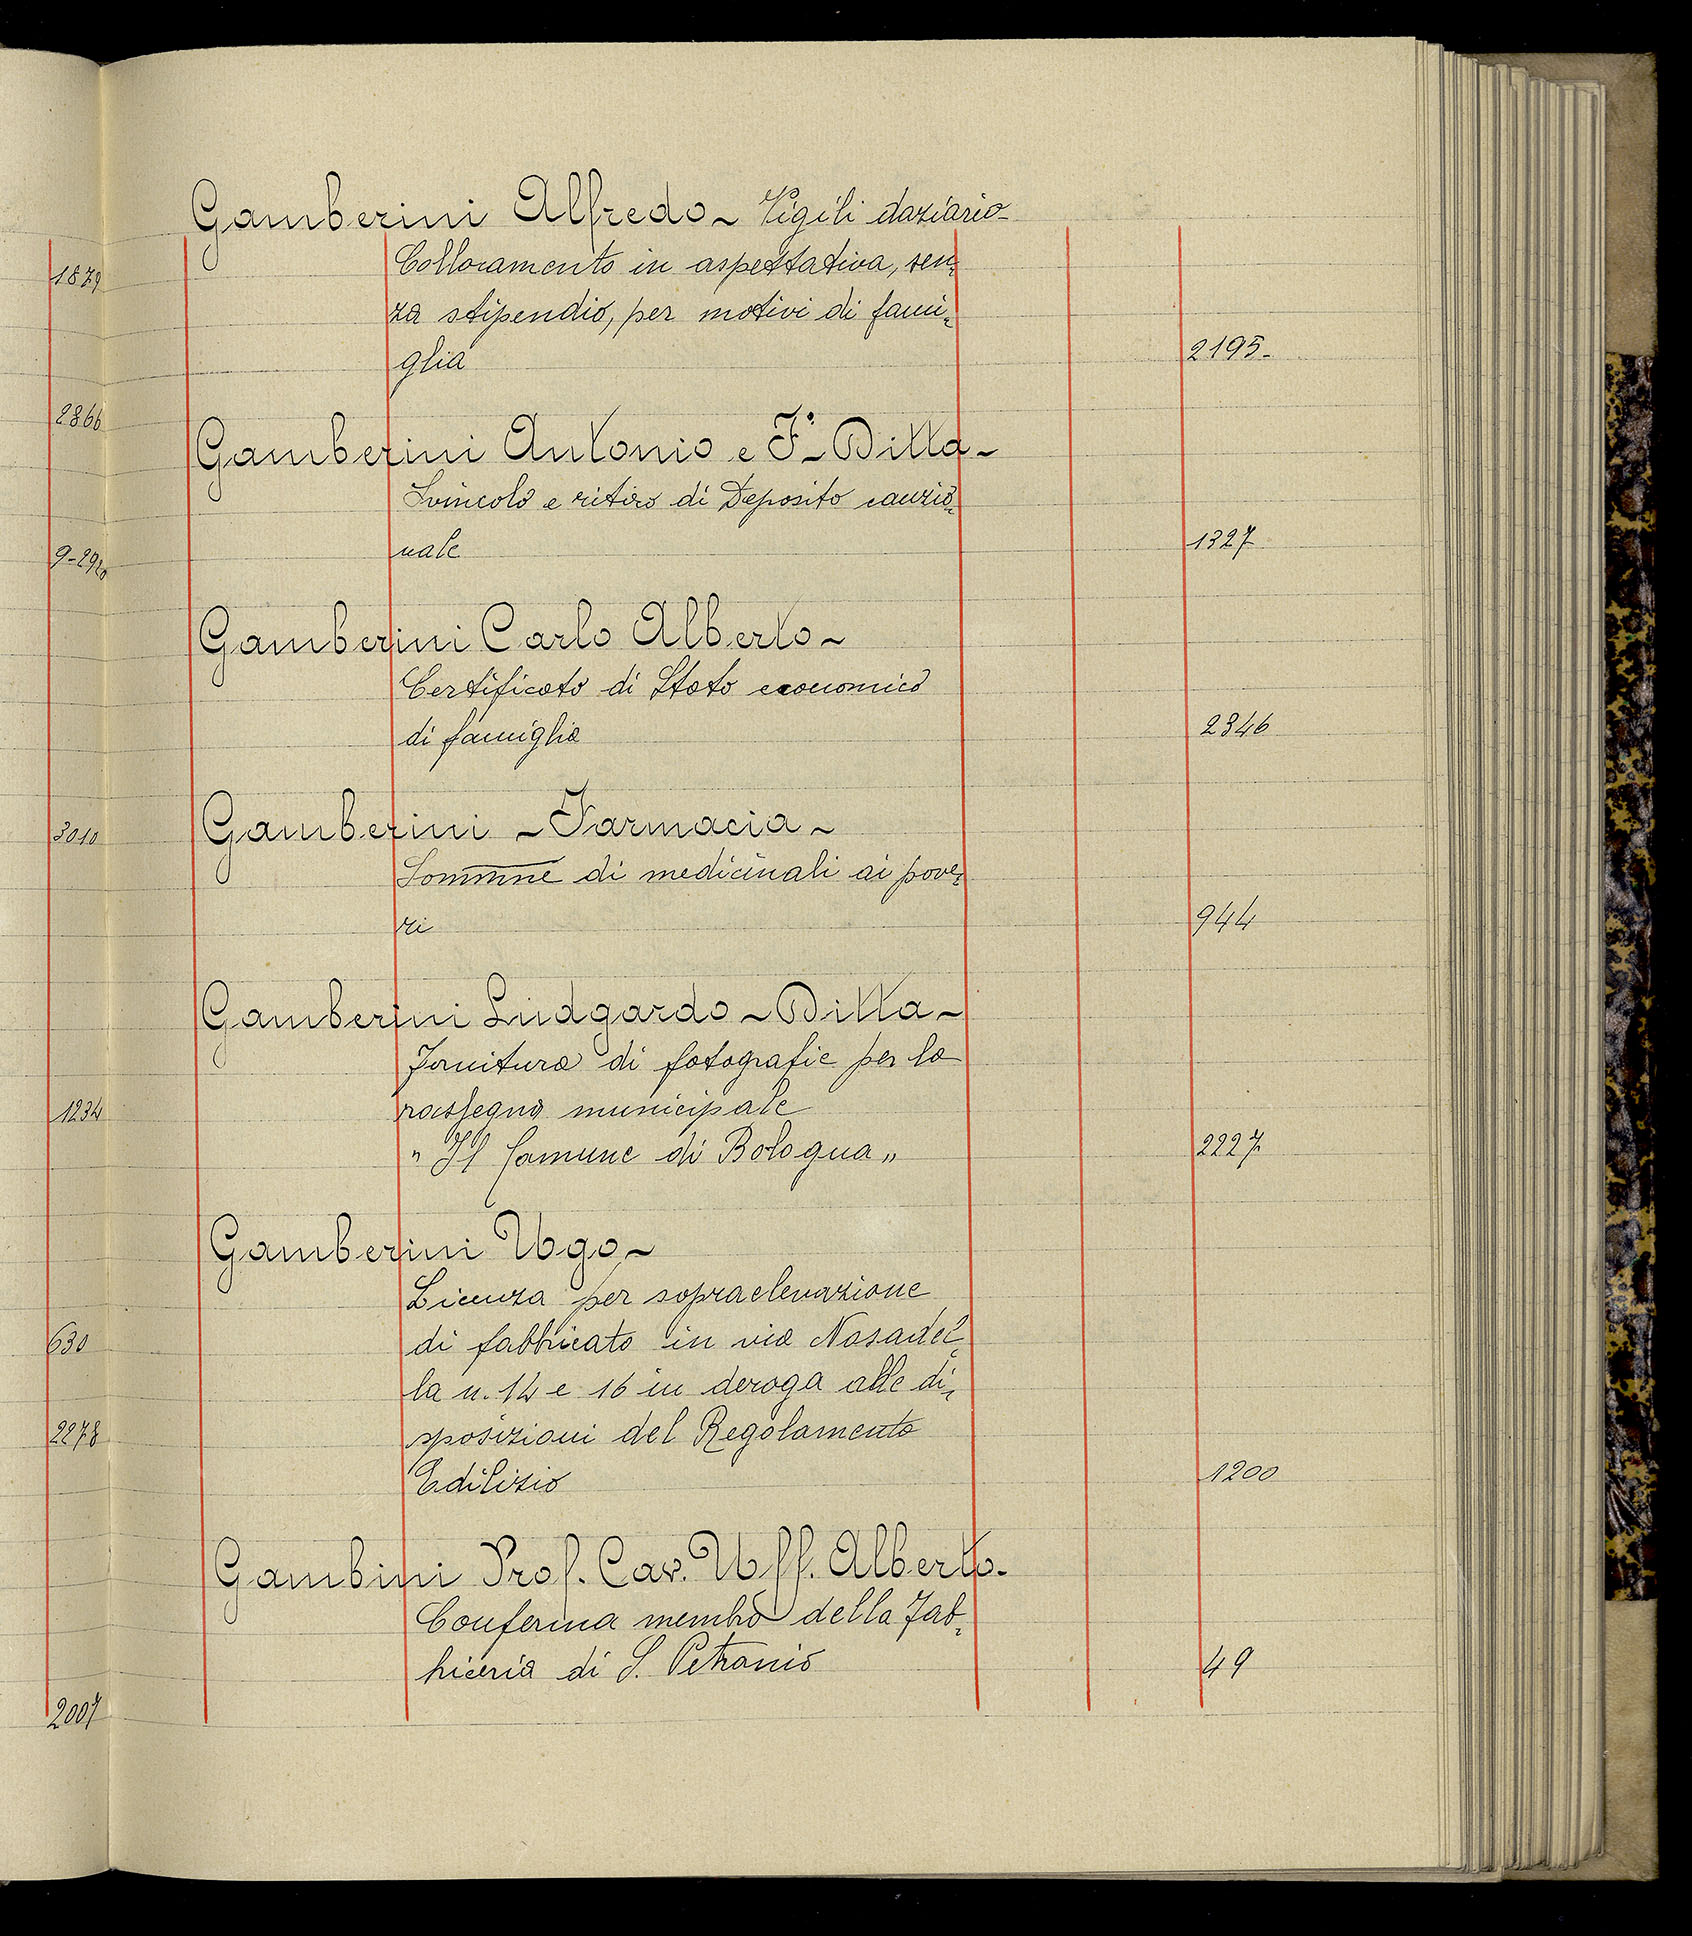 Gamberini Alfredo - Vigili daziario -
1879
Collocamento in aspettativa, sen-
za stipendio, per motivi di fami-
glia 2195.
2866
Gamberini Antonio e F.° Ditta -
Svincolo e ritiro di Deposito cauzio-
nale 1327
9-2920
Gamberini Carlo Alberto -
Certificato di Stato economico
di famiglia 2346
Gamberini - Farmacia -
3010
Somm̅n̅e di medicinali ai pove-
ri 944
Gamberini Liudgardo - Ditta -
Fornitura di fotografie per la
rassegna municipale
1234
" Il Comune di Bologna „ 2227
Gamberini Ugo -
Licenza per sopraelevazione
630
di fabbricato in via Nosadel-
la n. 14 e 16 in deroga alle di-
2278
sposizioni del Regolamento
Edilizio 1200
Gambini Prof. Cav. Uff. Alberto.
Conferma membro della Fab-
briceria di S. Petronio 49
2007